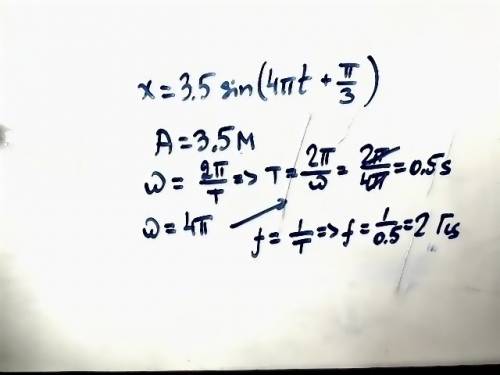 x = 3.5 sin(4πt + π/3)
A = 3.5 м
ω = 2π/T => T = 2π/ω = 2π/4π = 0.5 s
ω = 4π
f = 1/T => f = 1/0.5 = 2 Гц